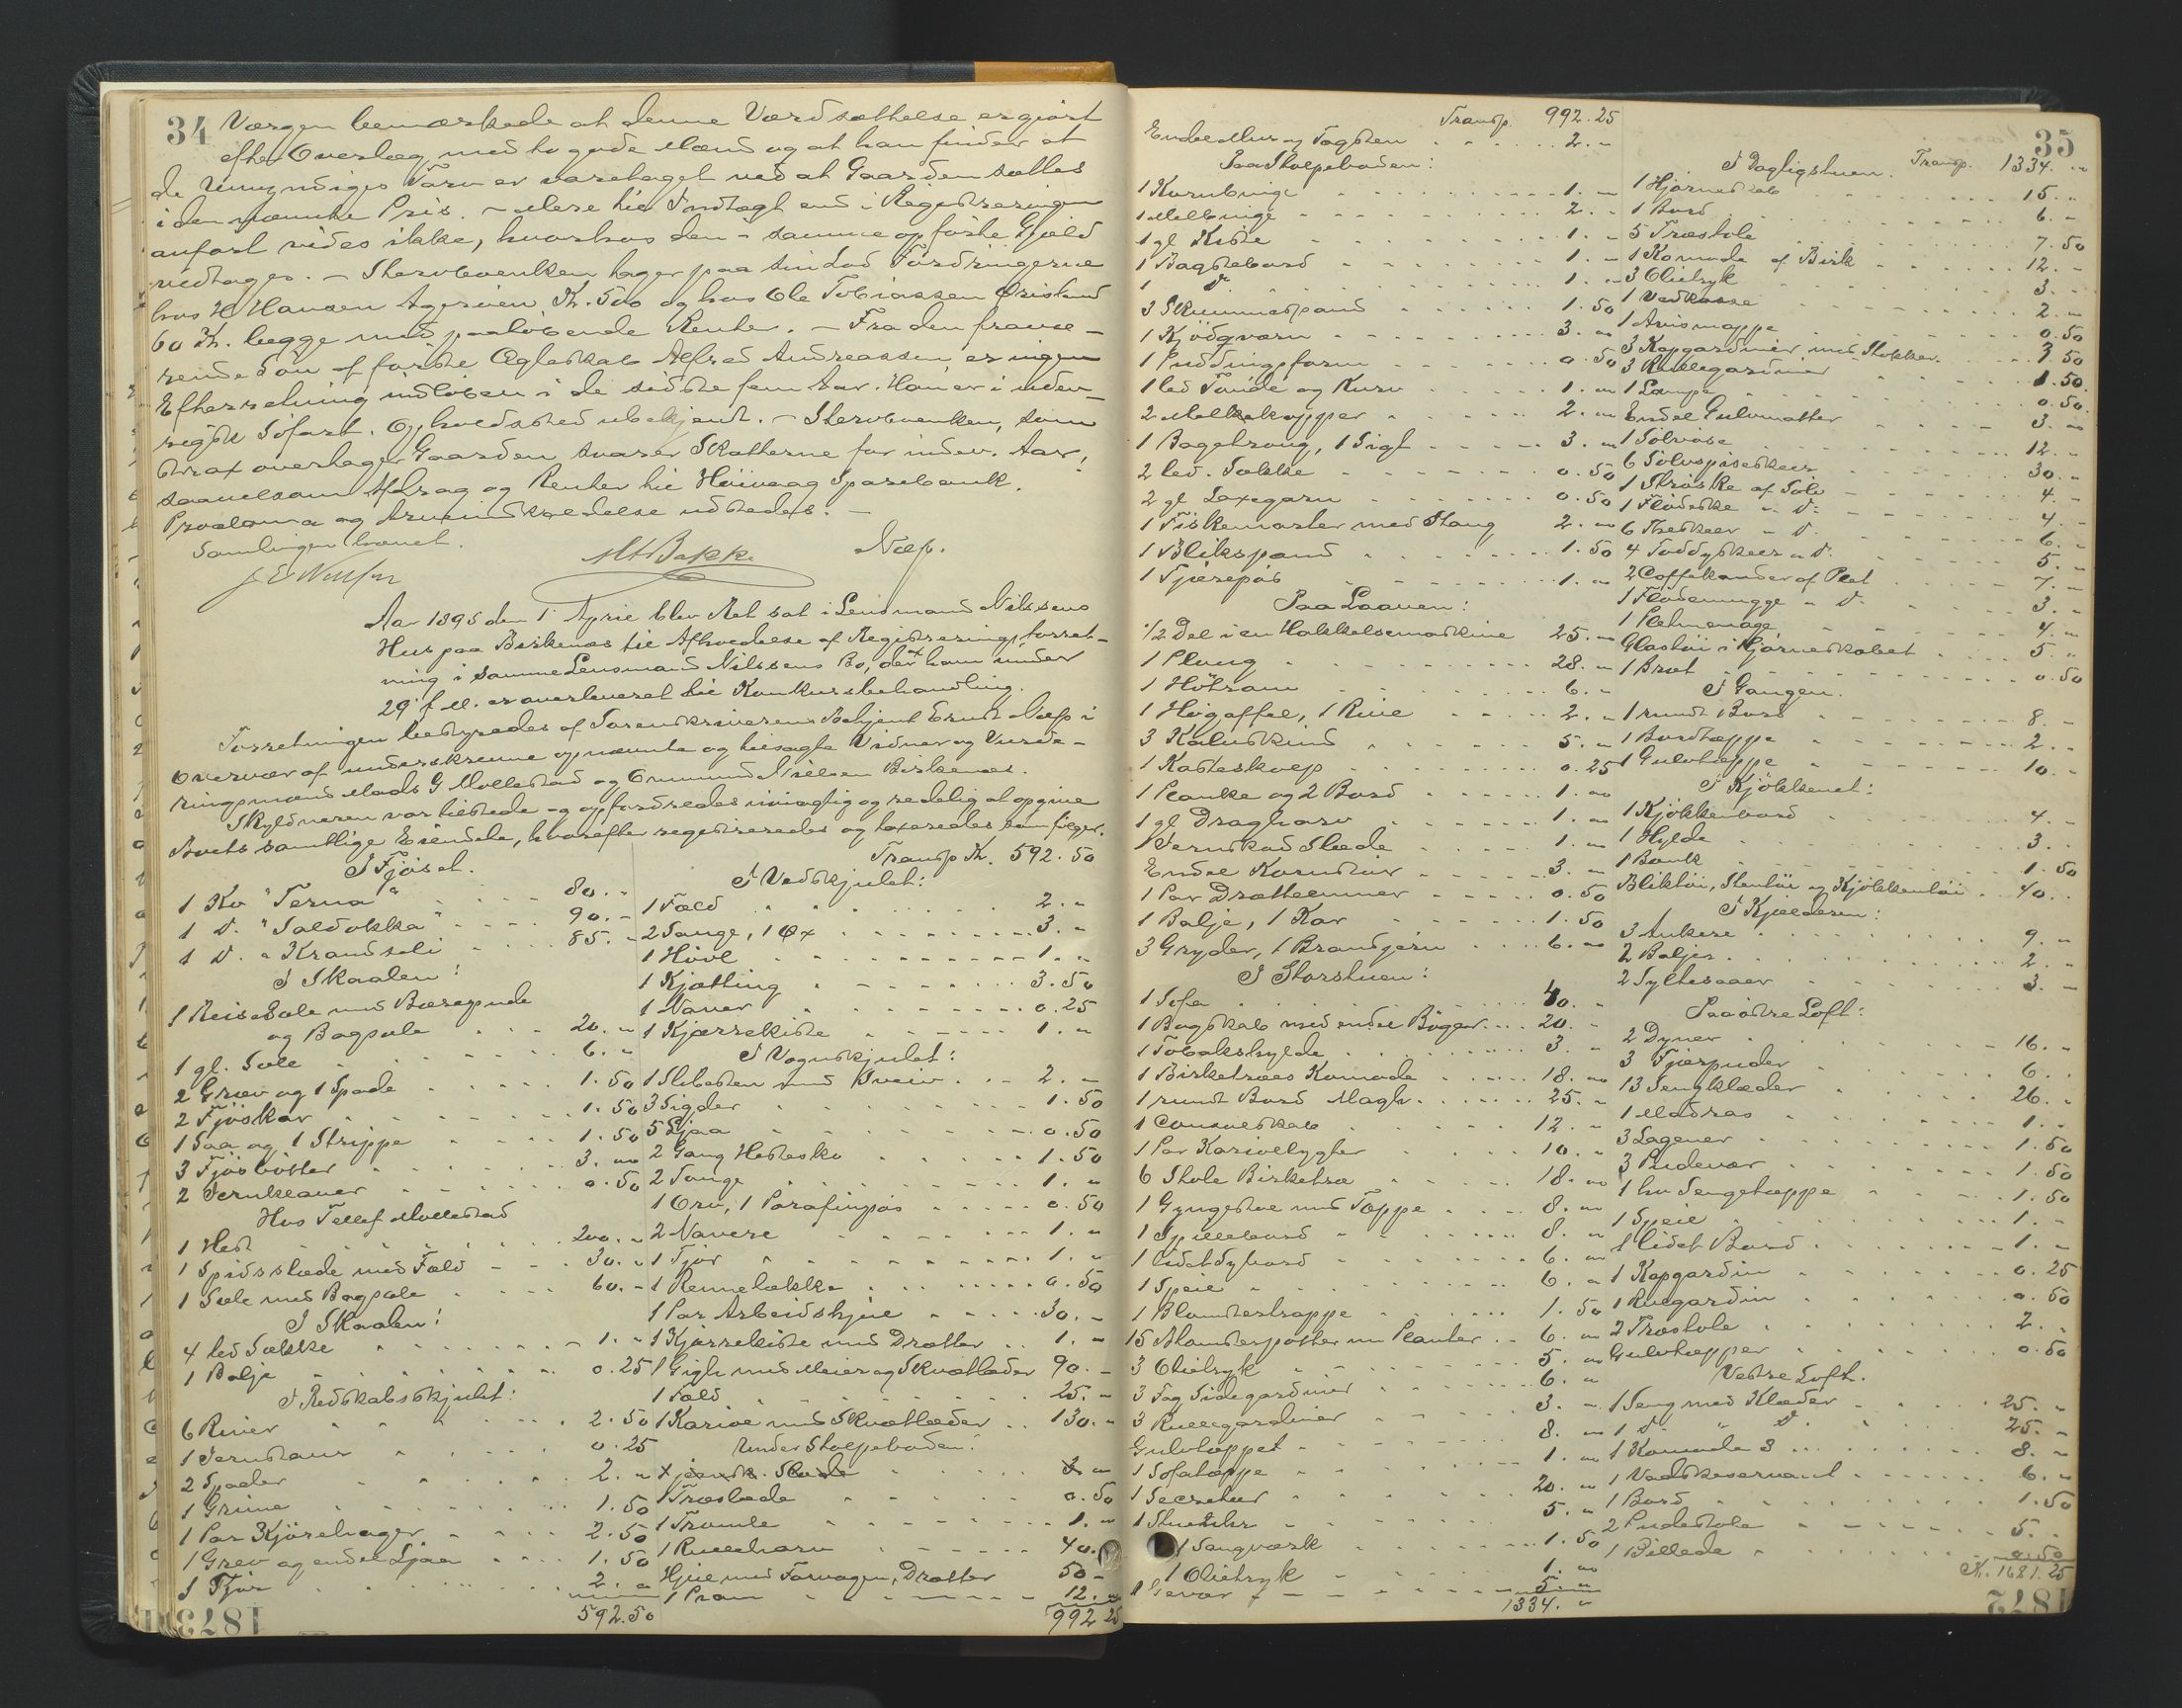 34
Værgen bemærkede at denne Værdsættelse er gjort
efter Overlæg med to gode Mænd og at han finder at
de Umyndiges Tarv er varetaget ved at Gaarden sættes
i den nævnte Pris. - Mere til Indtægt end i Registreringen
anført vides ikke, hvorhos den i samme opførte Gjæld
vedtages. - Sterboenken tager paa sin Lod Fordringerne
hos H Hansen Agerøen Kr. 500 og hos Ole Tobiassen Ørislund
60 Kr. begge med paaløbende Renter. - Fra den fravæ-
rende Søn af første Ægteskab Alfred Andreassen er ingen
Efterretning indløben i de sidste fem Aar. Han er i uden-
rigsk Søfart. Opholdssted ubekjendt. - Sterboenken, som
strax overtager Gaarden svarer Skatterne for indev. Aar,
saavelsom Afdrag og Renter til Høivaag Sparebank.
Proclama og Arveindkaldelse udstedes. -
Samlingen hævet.
J E Nilssen
M Bakke
Næss.
Aar 1895 den 1 April blev Ret sat i Lensmand Nilssens
Hus paa Birkenæs til Afholdelse af Registreringsforret-
ning i samme Lensmand Nilssens Bo, der ham under
29 f. M. er overleveret til Konkursbehandling.
Forretningen bestyredes af Sorenskriverens Betjent Ernst Næss i
Overvær af underskrevne opnævnte og tilsagte Vidner og Vurde-
ringsmænd Mads G Mollestad og Ommund Nielsen Birkenes.
Skyldneren var tilstede og opfordredes nøiagtig og redelig at opgive
Boets samtlige Eiendele, hvorefter registreredes og taxeredes som følger.
I Fjøset.
1 Ko "Terna" 80. "
1 D. "Saldokka" 90. -
1 D. "Krandseli 85. "
I Skaalen:
1 Reisesæle med Bærepude
og Bagsæle 20. "
1 gl. Sæle 6. "
2 Grev og 1 Spade 1.50
2 Fjøskar 1.50
1 Saa og 1 Strippe 1.50
3 Fjøsbøtter 3. "
2 Jernklaver 0.50
Hos Tellef Mollestad
1 Hest 200. "
1 Spidsslæde med Fæld 30. "
1 Sæle med Bagsæle 60. -
I Skaalen:
4 led Sække 1. "
1 Balje 0.25
I Redskabsskjulet:
6 River 2.50
1 Jernstaur 0.25
2 Spader 2. "
1 Grime 1.50
1 Par Kjørehager 2.50
1 Grev og endel Ljaa 1.50
1 Tjor 2. "
592.50
Transp Kr. 592.50
I Vedskjulet:
1 Fæld 2. "
2 Sauge, 1 Øx 3. "
1 Høvl 1. "
1 Kjætting 3.50
1 Naver 0.25
1 Kjærrekiste 1. "
I Vognskjulet:
1 Slibesten med Sveiv 2. "
3 Sigder 1.50
5 Ljaa 0.50
2 Gang Hestesko 1.50
2 Sauge 1. "
1 Orv, 1 Parafinpøs 0.50
2 Navere 1. "
1 Tjor 1. "
1 Rennelække 0.50
1 Par Arbeidshjul 30. -
1 Kjærrekiste med Drætter 1. "
1 Gigh med Meier og Skvætlæder 90. -
1 Fæld 25. "
1 Kariol med Skvætlæder 130. "
Under Stolpeboden:
1 Træslæde 0.50
1 Tromle 1. "
1 Rulleharv 40.
Hjul med Forvogn, Drætter 50 -
1 Pram 12. "
992 25
Transp. 992.25
Endel Mur og Tagsten 2. "
Paa Stolpeboden:
1 Kornbinge 1. "
1 Melbinge 2. "
1 gl Kiste 1. "
1 Bagstebord 1. "
1 D 1. "
3 Skummespand 1.50
1 Kjødqværn 3. "
1 Puddingsform 0.50
1 led Tønde og Kurv 1. "
2 Melkekopper 2. "
1 Bagetroug, 1 Sigt 3. "
2 led. Sække 0.50
2 gl Laxegarn 0.50
1 Fiskemorter med Stang 2. "
1 Blikspand 1.50
1 Tjærepøs 1. "
Paa Laaven:
1/2 Del i en Hakkelsemaskine 25. "
1 Ploug 28. "
1 Høtraa 6. "
1 Høgaffel, 1 Rive 2. "
3 Kalveskind 5. "
1 Kasteskoep 0.25
1 Planke og 2 Bord 1. "
1 gl Dragharv 1. "
1 Jernskod Slæde 1. "
Endel Kornstør 3. "
1 Par Drættelenner 0.50
1 Balje, 1 Kar 1.50
3 Gryder, 1 Brandjern 6. "
I Storstuen:
1 Sofa 40. "
1 Bogskab med endel Bøger 20. "
1 Tobakshylde 3. "
1 Birketræes Komode 18. "
1 rundt Bord Magh. 25. "
1 Consolskab 12. "
1 Par Kariollygter 10. "
6 Stole Birketræ 18. "
1 Gyngestol med Tæppe 8. "
1 Spillebord 8. "
1 lidet Sybord 6. "
1 Speil 6. "
1 Blomstertrappe 1.50
15 Blomsterpotter m Planter 6. "
3 Olietryk 5. "
3 Fag Sidegardiner 6. "
3 Rullegardiner 3. "
Gulvtæppet 8. "
1 Sofatæppe 1. "
1 Secretær 20. "
1 Stueuhr 5. "
1 Sangværk 1.50
1 Olietryk 1. "
1 Gevær 5. "
1334. "
35
I Dagligstuen. Transp. 1334. "
1 Hjørneskab 15. "
1 Bord 6. "
5 Træstole 7.50
1 Komode af Birk 12. "
3 Olietryk 3. "
1 Vedkasse 2. "
1 Avismappe 0.50
3 Kapgardiner med Stokker 3.50
3 Rullegardiner 1.50.
1 Lampe 0.50.
Endel Gulvmatter 3. "
1 Sølvøse 12. "
6 Sølvspiseskeer 30. "
1 Strøske af Sølv 4. "
1 Flødeske " D: 4. "
6 Theskeer " D. 6. "
4 Toddyskeer " D. 5. "
2 Coffekander af Plet 7. "
1 Flødemugge " D. 3. "
1 Platmenage 4. "
Glastøi i Hjørneskabet 5. "
1 Bræt 0.50
I Gangen.
1 rundt Bord 8. "
1 Bordtæppe 2. "
1 Gulvtæppe 10. "
I Kjøkkenet:
1 Kjøkkenbord 4. "
1 Hylde 3. "
1 Bænk 1.50
Bliktøi, Stentøi og Kjøkkentøi 40. "
I Kjælderen:
3 Ankere 9. "
2 Baljer 2. "
2 Syltesaaer 3. "
Paa østre Loft:
2 Dyner 16. "
3 Fjærpuder 6. "
13 Sengklæder 26. "
1 Madras 1. "
3 Lagener 1.50
3 Pudevar 1.50
1 hv Sengetæppe 1.50
1 Speil 1. "
1 lidet Bord 1. "
1 Kapgardin 0.25
1 Rulgardin 0.50
2 Træstole 2. "
Gulvtæpper 0.50
Vestre Loft.
1 Seng med Klæder 25. "
1 D. " D 25. "
1 Komode 3 8. "
1 Vadskeservant 6. "
1 Bord 1.50
2 Pudestole 5. "
1 Billede 0.50
Kr. 1681.25
1873
1872